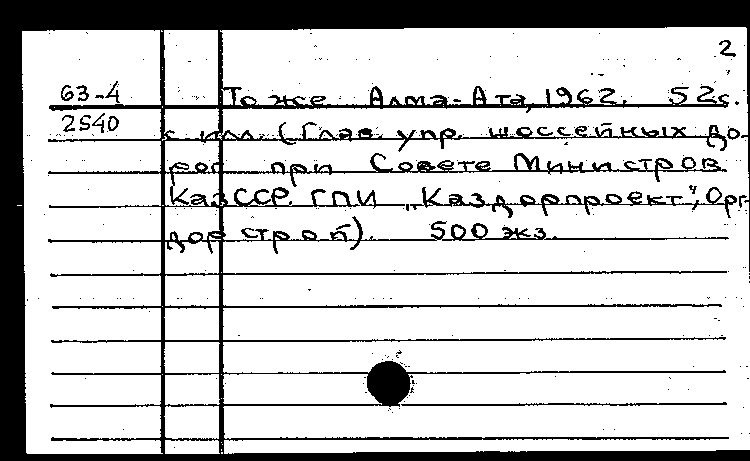 2
63-4 То же Алма-Ата, 1962. 52с.
2540 с илл. (Глав. упр. шоссейных до-
рог при Совете Министров
КазССР. ГПИ „Каздорпроект", Орг-
дорстрой). 500 экз.